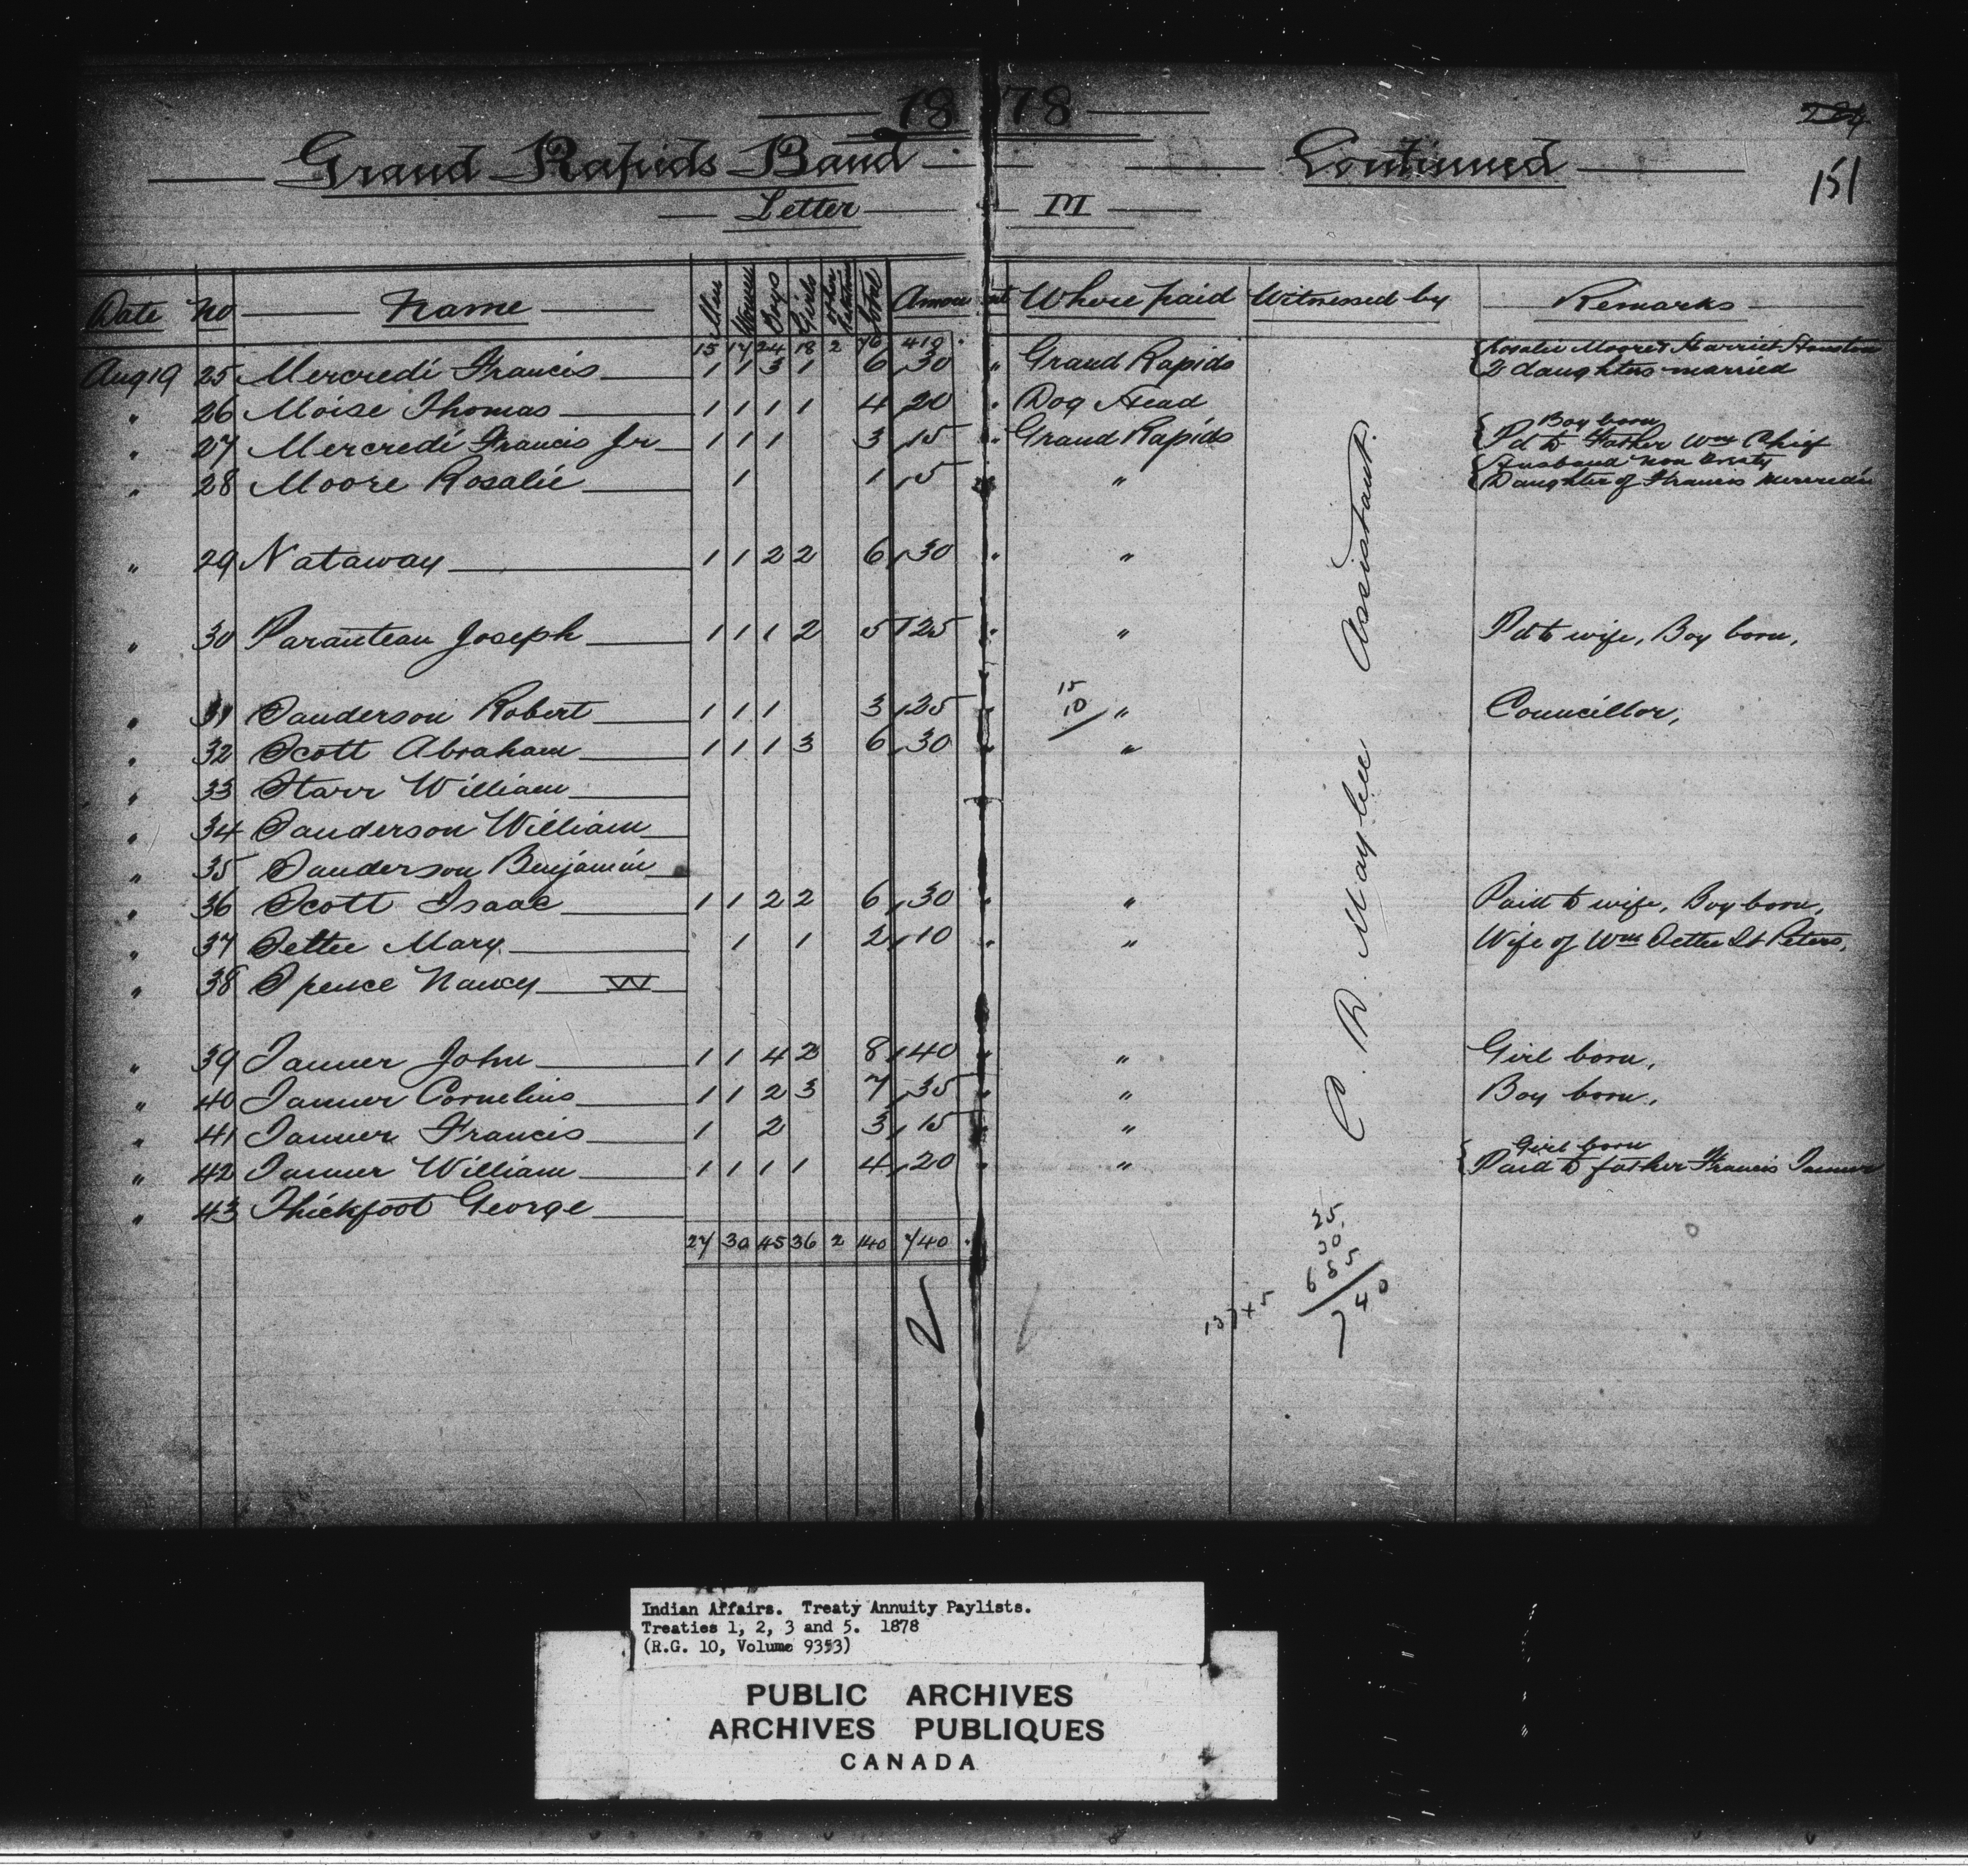 18 78
Grand Rapids Band Continued
151
Letter M
Date No Name Men Women Boys Girls Other Relatives Total Amount Where paid Witnessed by Remarks
15 17 24 18 2 76 410
Rosalie Moore & Harriet Houston
Aug 19 25 Mercredi Francis 1 1 3 1 6 30 " Grand Rapids 2 daughters married
" 26 Moise Thomas 1 1 1 1 4 20 " Dog Head
Boy born
" 27 Mercredi Francis Jr 1 1 1 3 15 " Grand Rapids Pd to Father Wm Chief
Husband non treaty
" 28 Moore Rosalie 1 1 5 " Daughter of Francis Mercredi
" 29 Nataway 1 1 2 2 6 30 " "
" 30 Paranteau Joseph 1 1 1 2 5 25 " " Pd to wife, Boy born,
15
10
" 31 Sanderson Robert 1 1 1 3 25 " " Councillor,
" 32 Scott Abraham 1 1 1 3 6 30 " "
" 33 Starr William
" 34 Sanderson William
" 35 Sanderson Benjamin
" 36 Scott Isaac 1 1 2 2 6 30 " " Paid to wife, Boy born,
" 37 Settee Mary 1 1 2 10 " " Wife of Wm Settee St Peters,
" 38 Spence Nancy W
" 39 Tanner John 1 1 4 2 8 40 " " Girl born,
" 40 Tanner Cornelius 1 1 2 3 7 35 " " Boy born,
" 41 Tanner Francis 1 2 3 15 " "
Girl born
" 42 Tanner William 1 1 1 1 4 20 " " Paid to father Francis Tanner
" 43 Thickfoot George
27 30 45 36 2 140 740
C. D. Maybee Assistant.
25
30
685
740
137 x 5
Indian Affairs. Treaty Annuity Paylists.
Treaties 1, 2, 3 and 5. 1878
(R.G. 10, Volume 9353)
PUBLIC ARCHIVES
ARCHIVES PUBLIQUES
CANADA